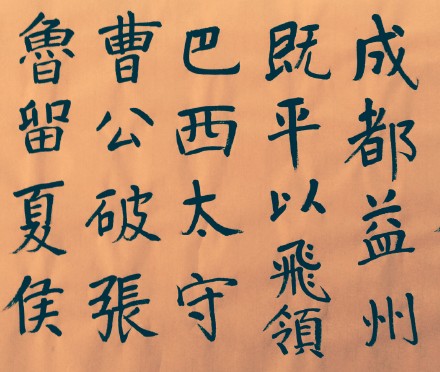 成都益州
既平以飛領
巴西太守
曹公破張
魯留夏侯